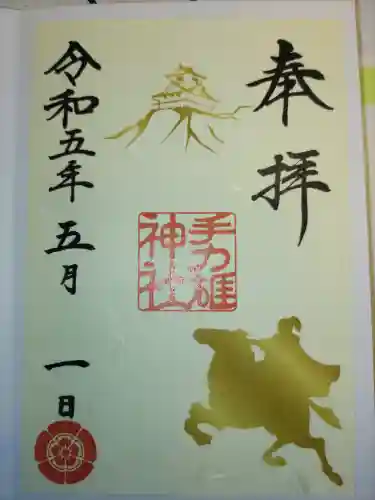 奉拝
手力雄
神社
令和五年五月一日